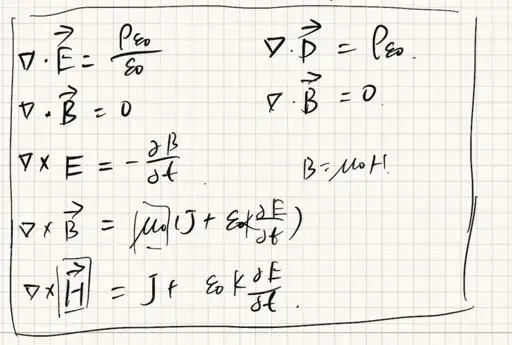 ∇·E⃗ = ρε₀/ε₀ ∇·D⃗ = ρε₀.
∇·B⃗ = 0 ∇·B⃗ = 0
∇× E = -∂B/∂t B=μ₀H
∇×B⃗ = μ₀(J + ε₀k ∂E/∂t)
∇×H⃗ = J+ ε₀k ∂E/∂t.